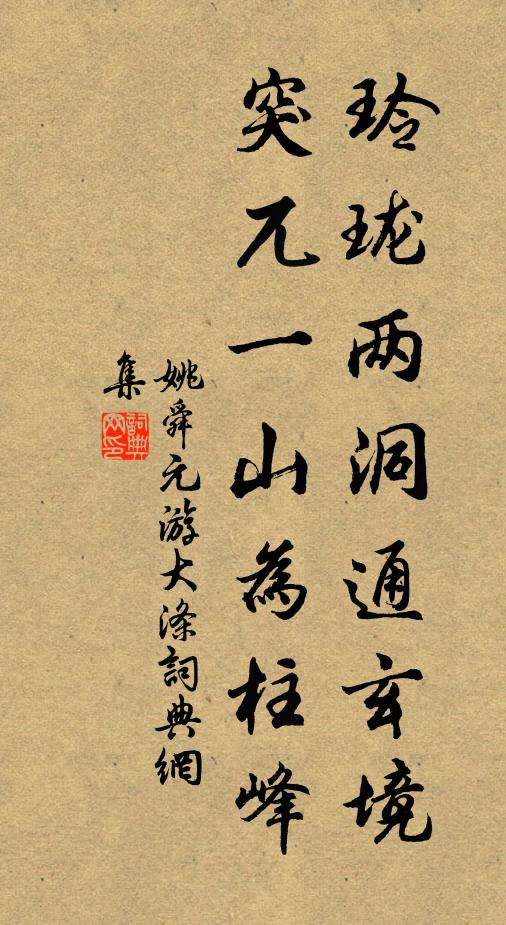 玲珑两洞通玄境
突兀一山為柱峰
姚舜元游大涤詞典網
集
詞典
网印